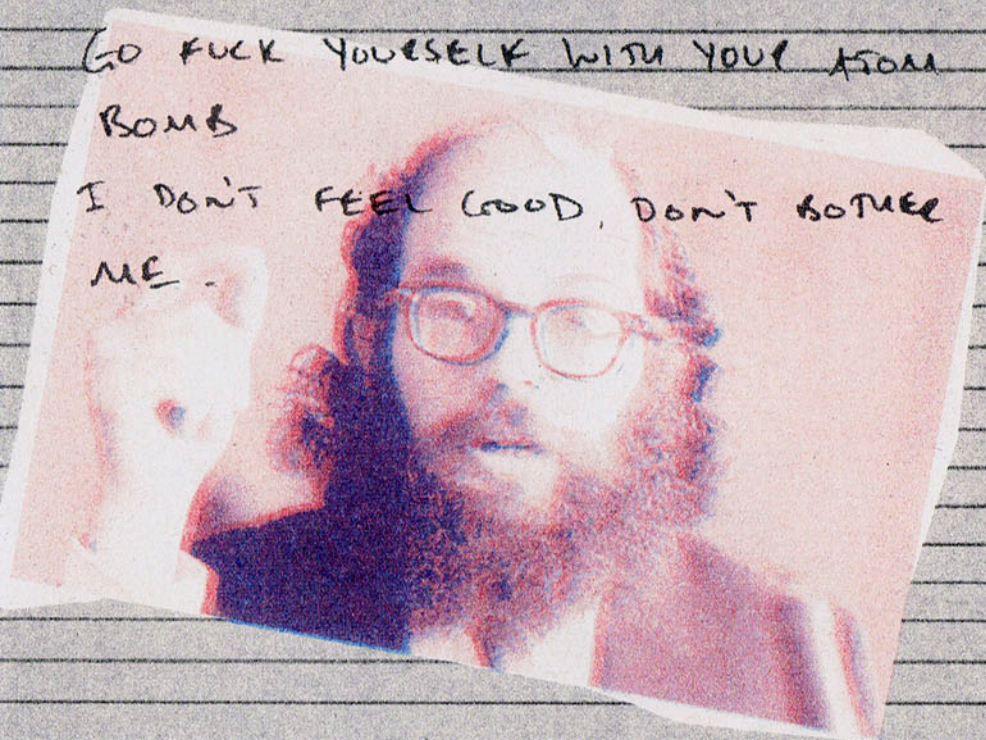 GO FUCK YOURSELF WITH YOUR ATOM
BOMB
I DON'T FEEL GOOD, DON'T BOTHER
ME.